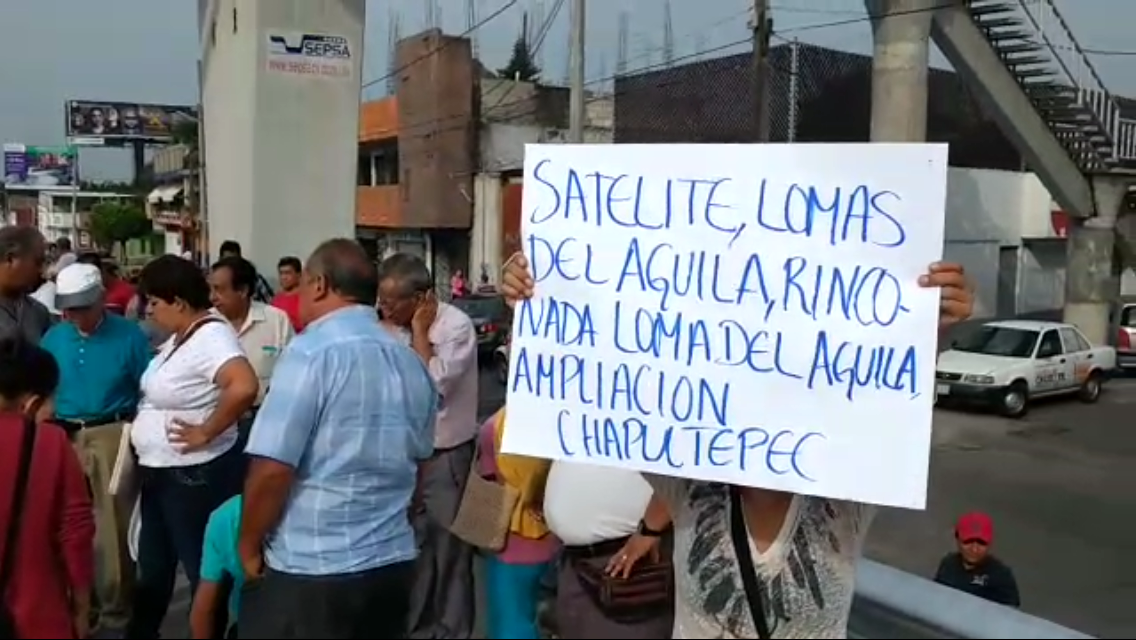 SEPSA
SATELITE, LOMAS
DEL AGUILA, RINCO-
NADA LOMA DEL AGUILA,
AMPLIACION
CHAPULTEPEC